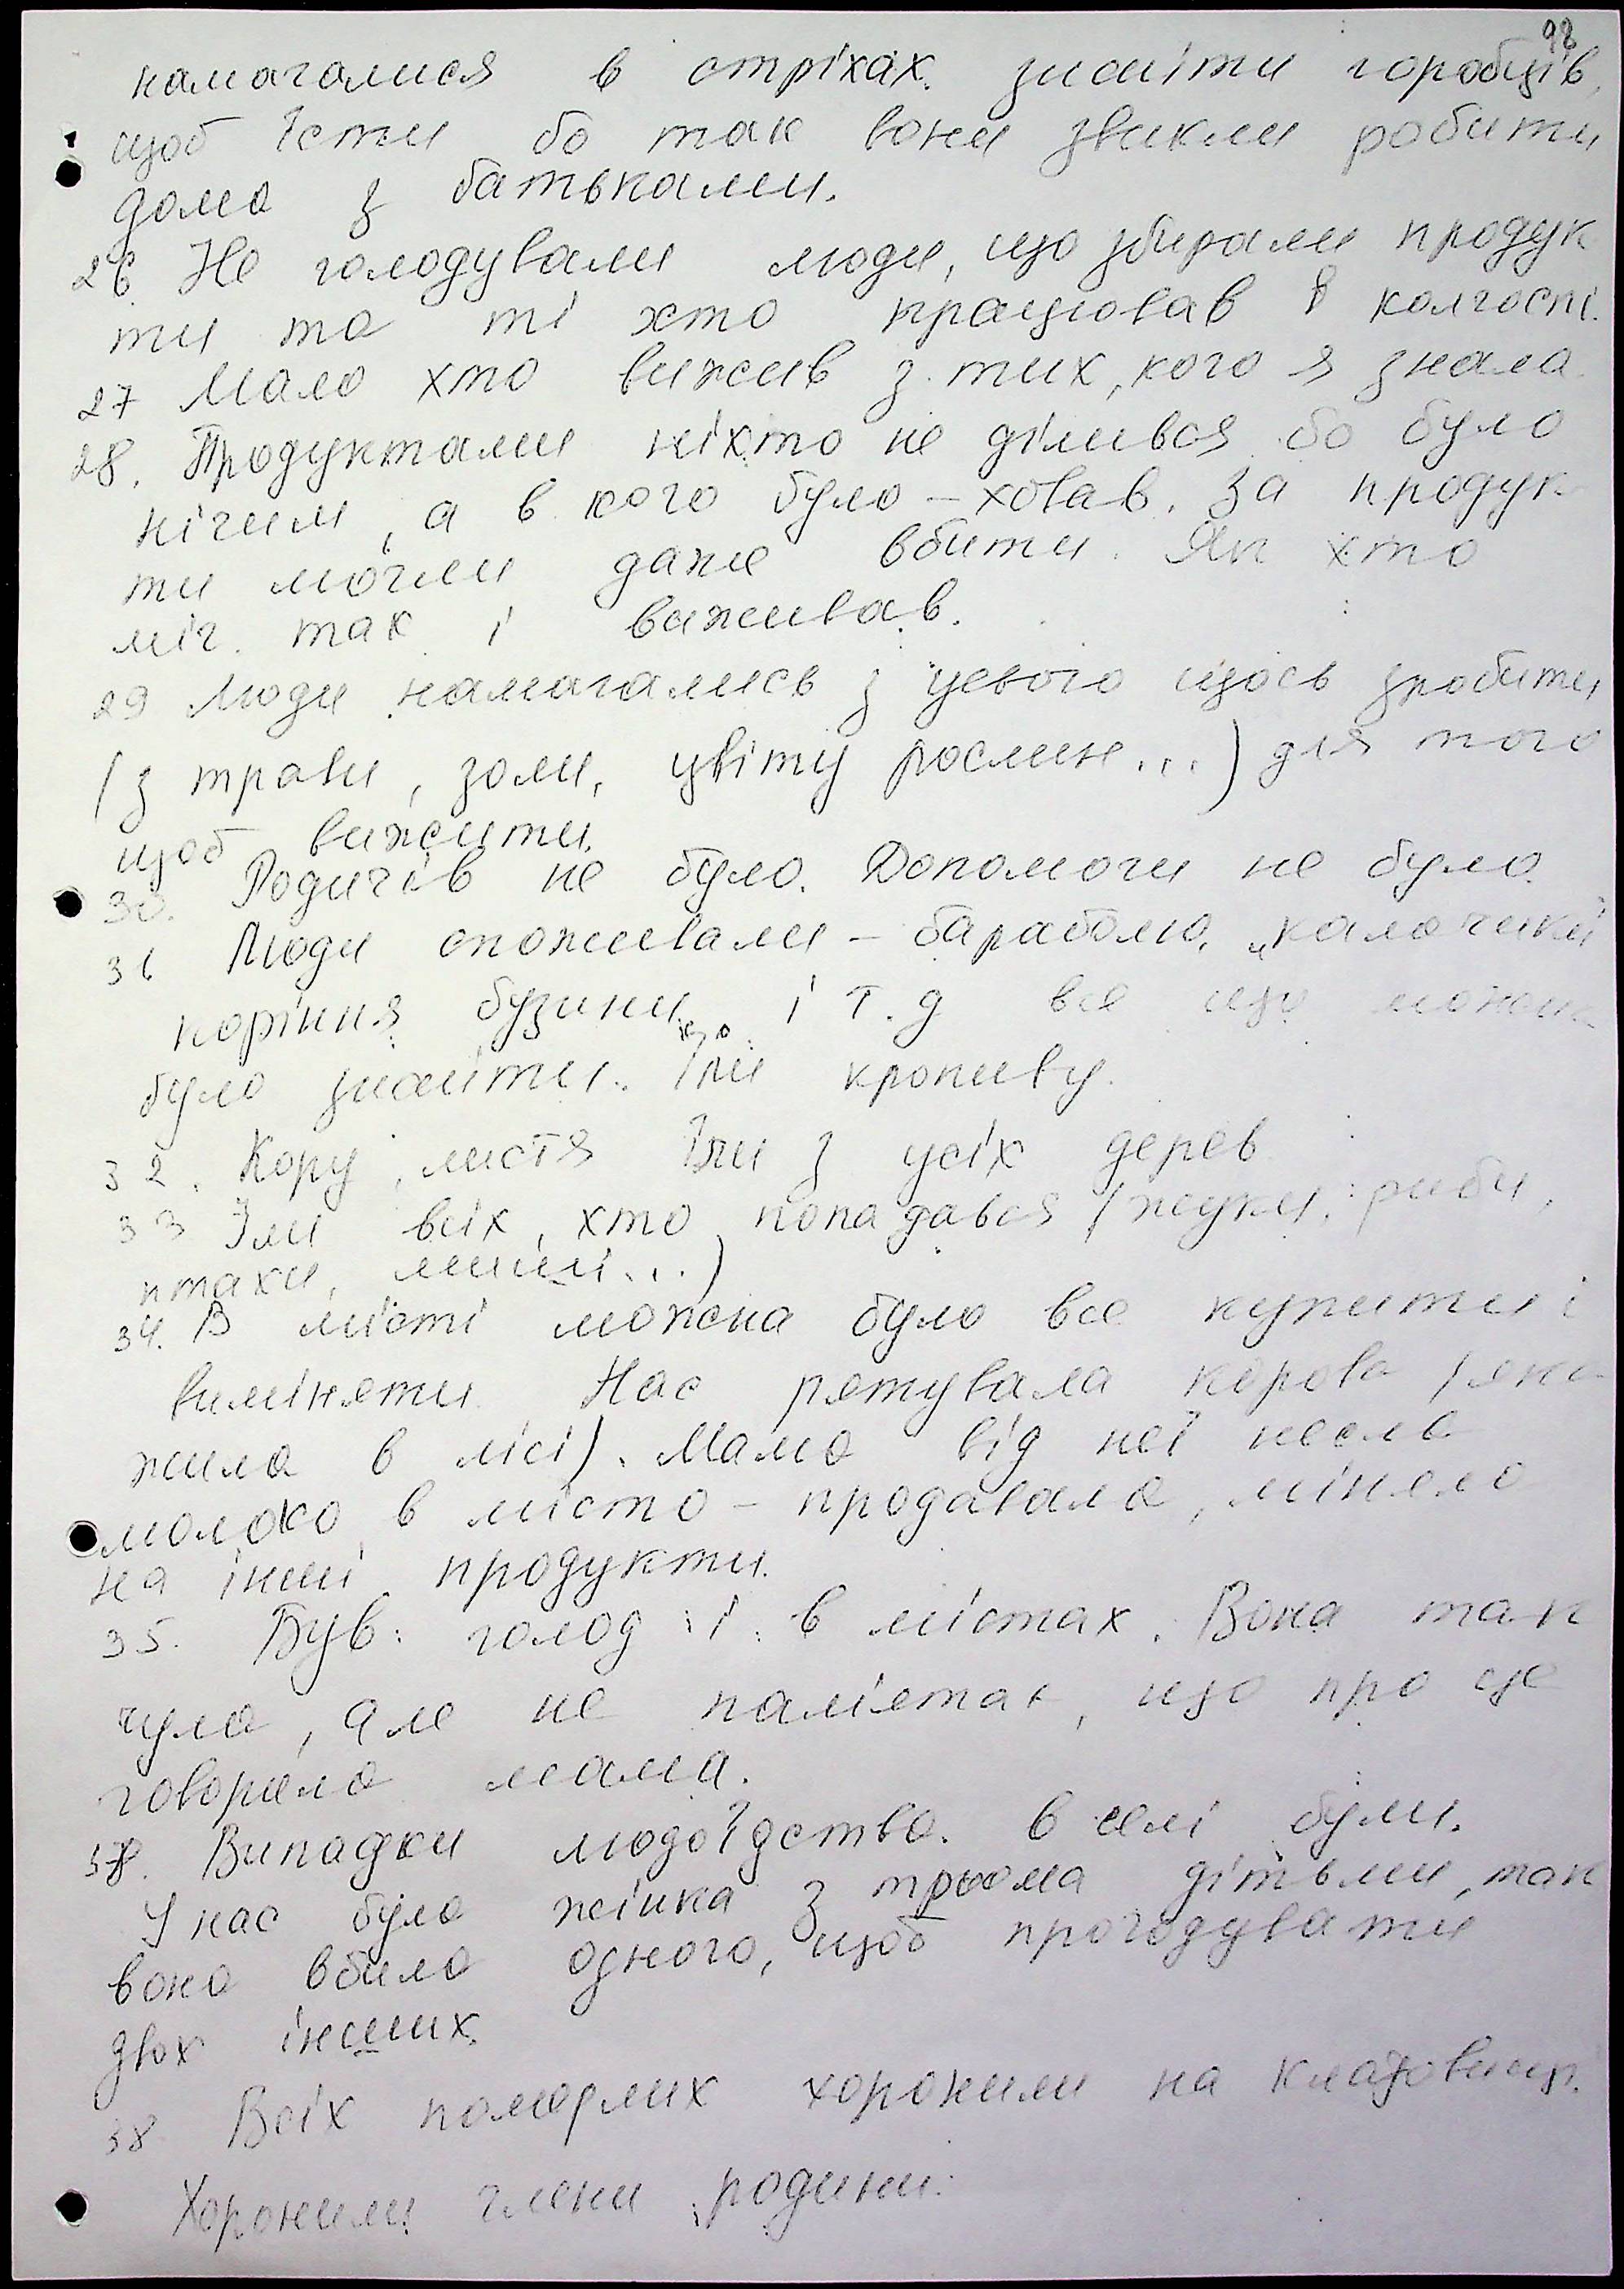 98
намагалися в стріхах знайти горобців,
щоб їсти бо так вони звикли робити
дома з батьками.
26. Не голодували люди, що збирали продук
ти та ті хто працював в колгоспі.
27 Мало хто вижив з тих, кого я знала.
28. Продуктами ніхто не ділився бо було
нічим, а в кого було – ховав. За продук
ти могли даже вбити. Як хто
міг так і виживав.
29 Люди намагались з усього щось зробити
(з трави, золи, цвіту рослин...) для того
щоб вижити.
30. Родичів не було. Допомоги не було.
31 Люди споживали – бараболю, „калачики"
коріння бузини і т.д все що можна
було знайти. Їли кропиву.
32. Кору, листя їли з усіх дерев
33 Їли всіх, хто попадався (жуки, риби,
птахи, миші...)
34. В місті можна було все купити і
виміняти. Нас рятувала корова (яка
жила в лісі). Мама від неї несла
молоко в місто – продавала, міняла
на інші продукти.
35. Був голод і в містах. Вона так
чула, але не памʼятає, що про це
говорила мама.
37. Випадки людоїдства в селі були.
У нас була жінка з трьома дітьми, так
вона вбила одного, щоб прогодувати
двох інших.
38 Всіх померлих хоронили на кладовищі.
Хоронили члени родини.